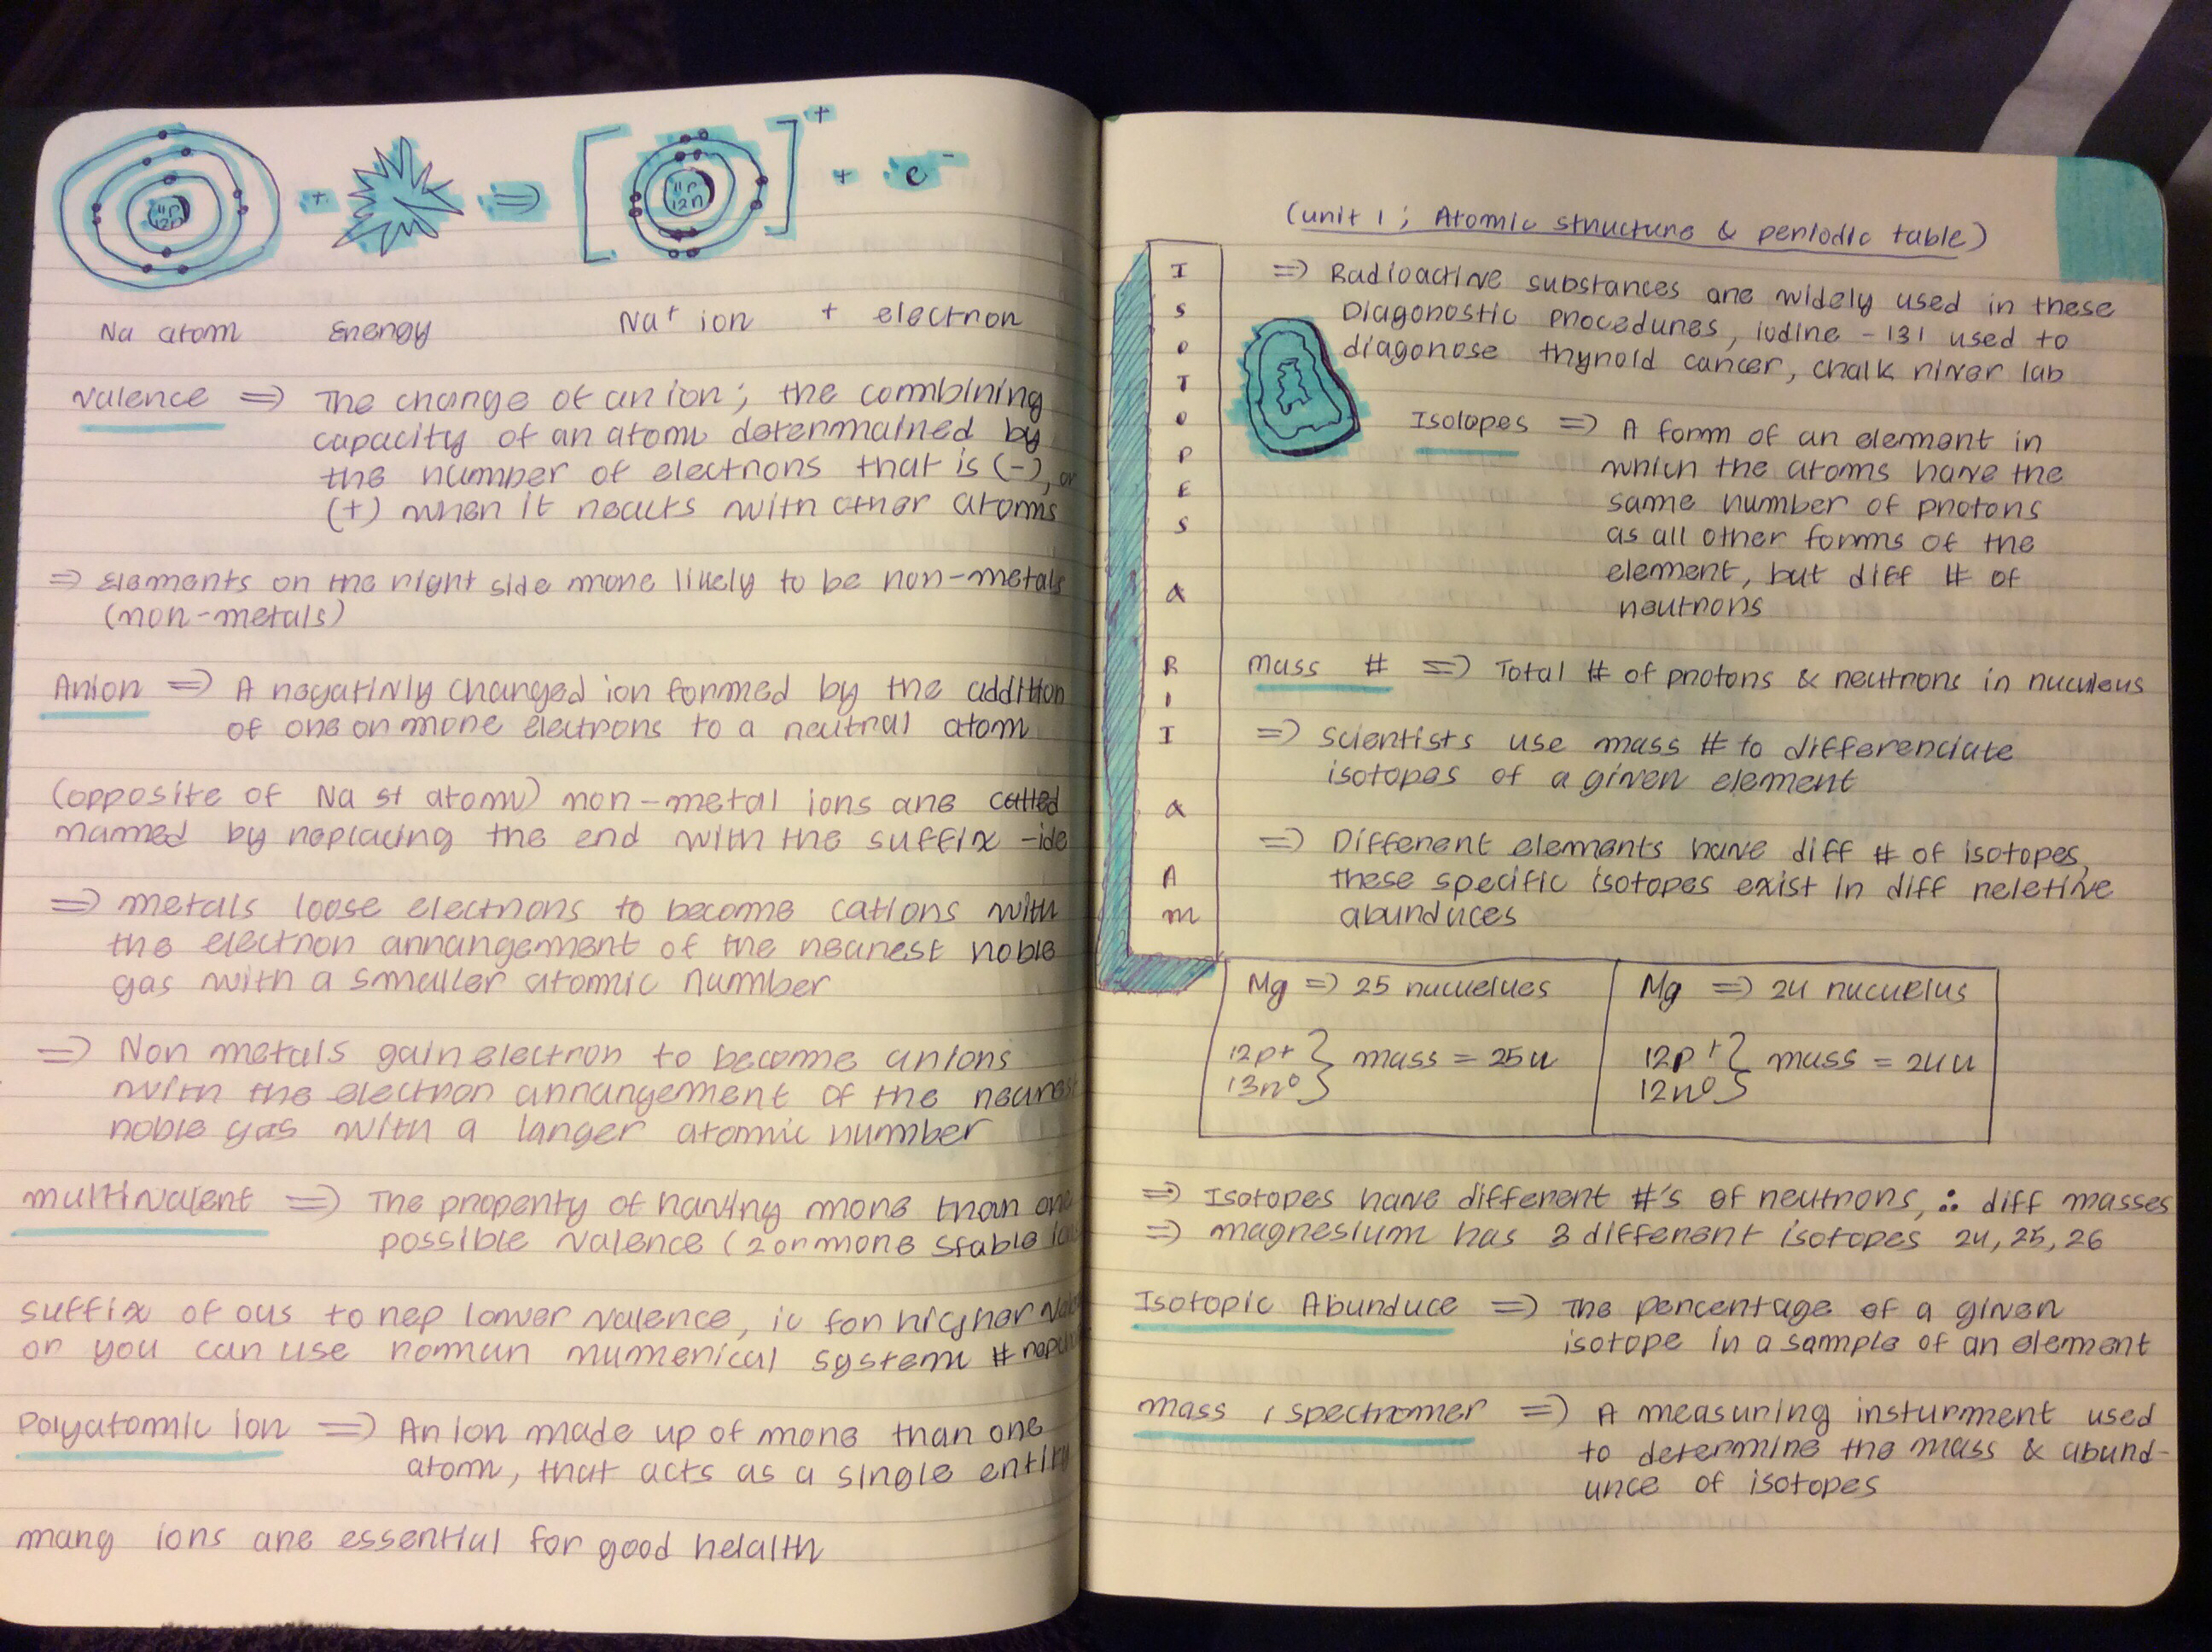 11p 12n + ⇒ [ 11p 12n ]+ + e⁻
Na atom Energy Na⁺ ion + electron
Valence ⇒ The charge of an ion; the combining
capacity of an atom deternmained by
the number of electrons that is (-), or
(+) when it reacts with other atoms
⇒ Elements on the right side more likely to be non-metals
(non-metals)
Anion ⇒ A negativly charged ion formed by the addition
of one or more electrons to a neutral atom
(opposite of Na st atom) non-metal ions are called
named by replacing the end with the suffix -ide
⇒ metals loose electrons to become cations with
the electron arrangement of the nearest noble
gas with a smaller atomic number
⇒ Non metals gain electron to become anions
with the electron arrangement of the nearest
noble gas with a larger atomic number
multivalent ⇒ The property of having more than one
possible valence (2 or more stable
suffix of ous to rep lower valence, ic for higher
or you can use roman numerical system #
Polyatomic ion ⇒ An ion made up of more than one
atom, that acts as a single entity
many ions are essential for good helalth
(unit 1; Atomic structure & periodic table)
ISOTOPES & RII & AM
⇒ Radioactive substances are widely used in these
Diagonostic procedures, iodine -131 used to
diagonose thyroid cancer, chalk river lab
Isotopes ⇒ A form of an element in
which the atoms have the
same number of protons
as all other forms of the
element, but diff # of
neutrons
mass # ⇒ Total # of protons & neutrons in nuculeus
⇒ Scientists use mass # to differenciate
isotopes of a given element
⇒ Different elements have diff # of isotopes,
these specific isotopes exist in diff reletive
abunduces
Mg ⇒ 25 nucuelues
12p+ } mass = 25u
13n⁰
Mg ⇒ 24 nucuelus
12p+ } mass = 24u
12n⁰
⇒ Isotopes have different #'s of neutrons, ∴ diff masses
⇒ magnesium has 3 different isotopes 24, 25, 26
Isotopic Abunduce ⇒ The percentage of a given
isotope in a sample of an element
mass spectromer ⇒ A measuring insturment used
to determine the mass & abund-
unce of isotopes